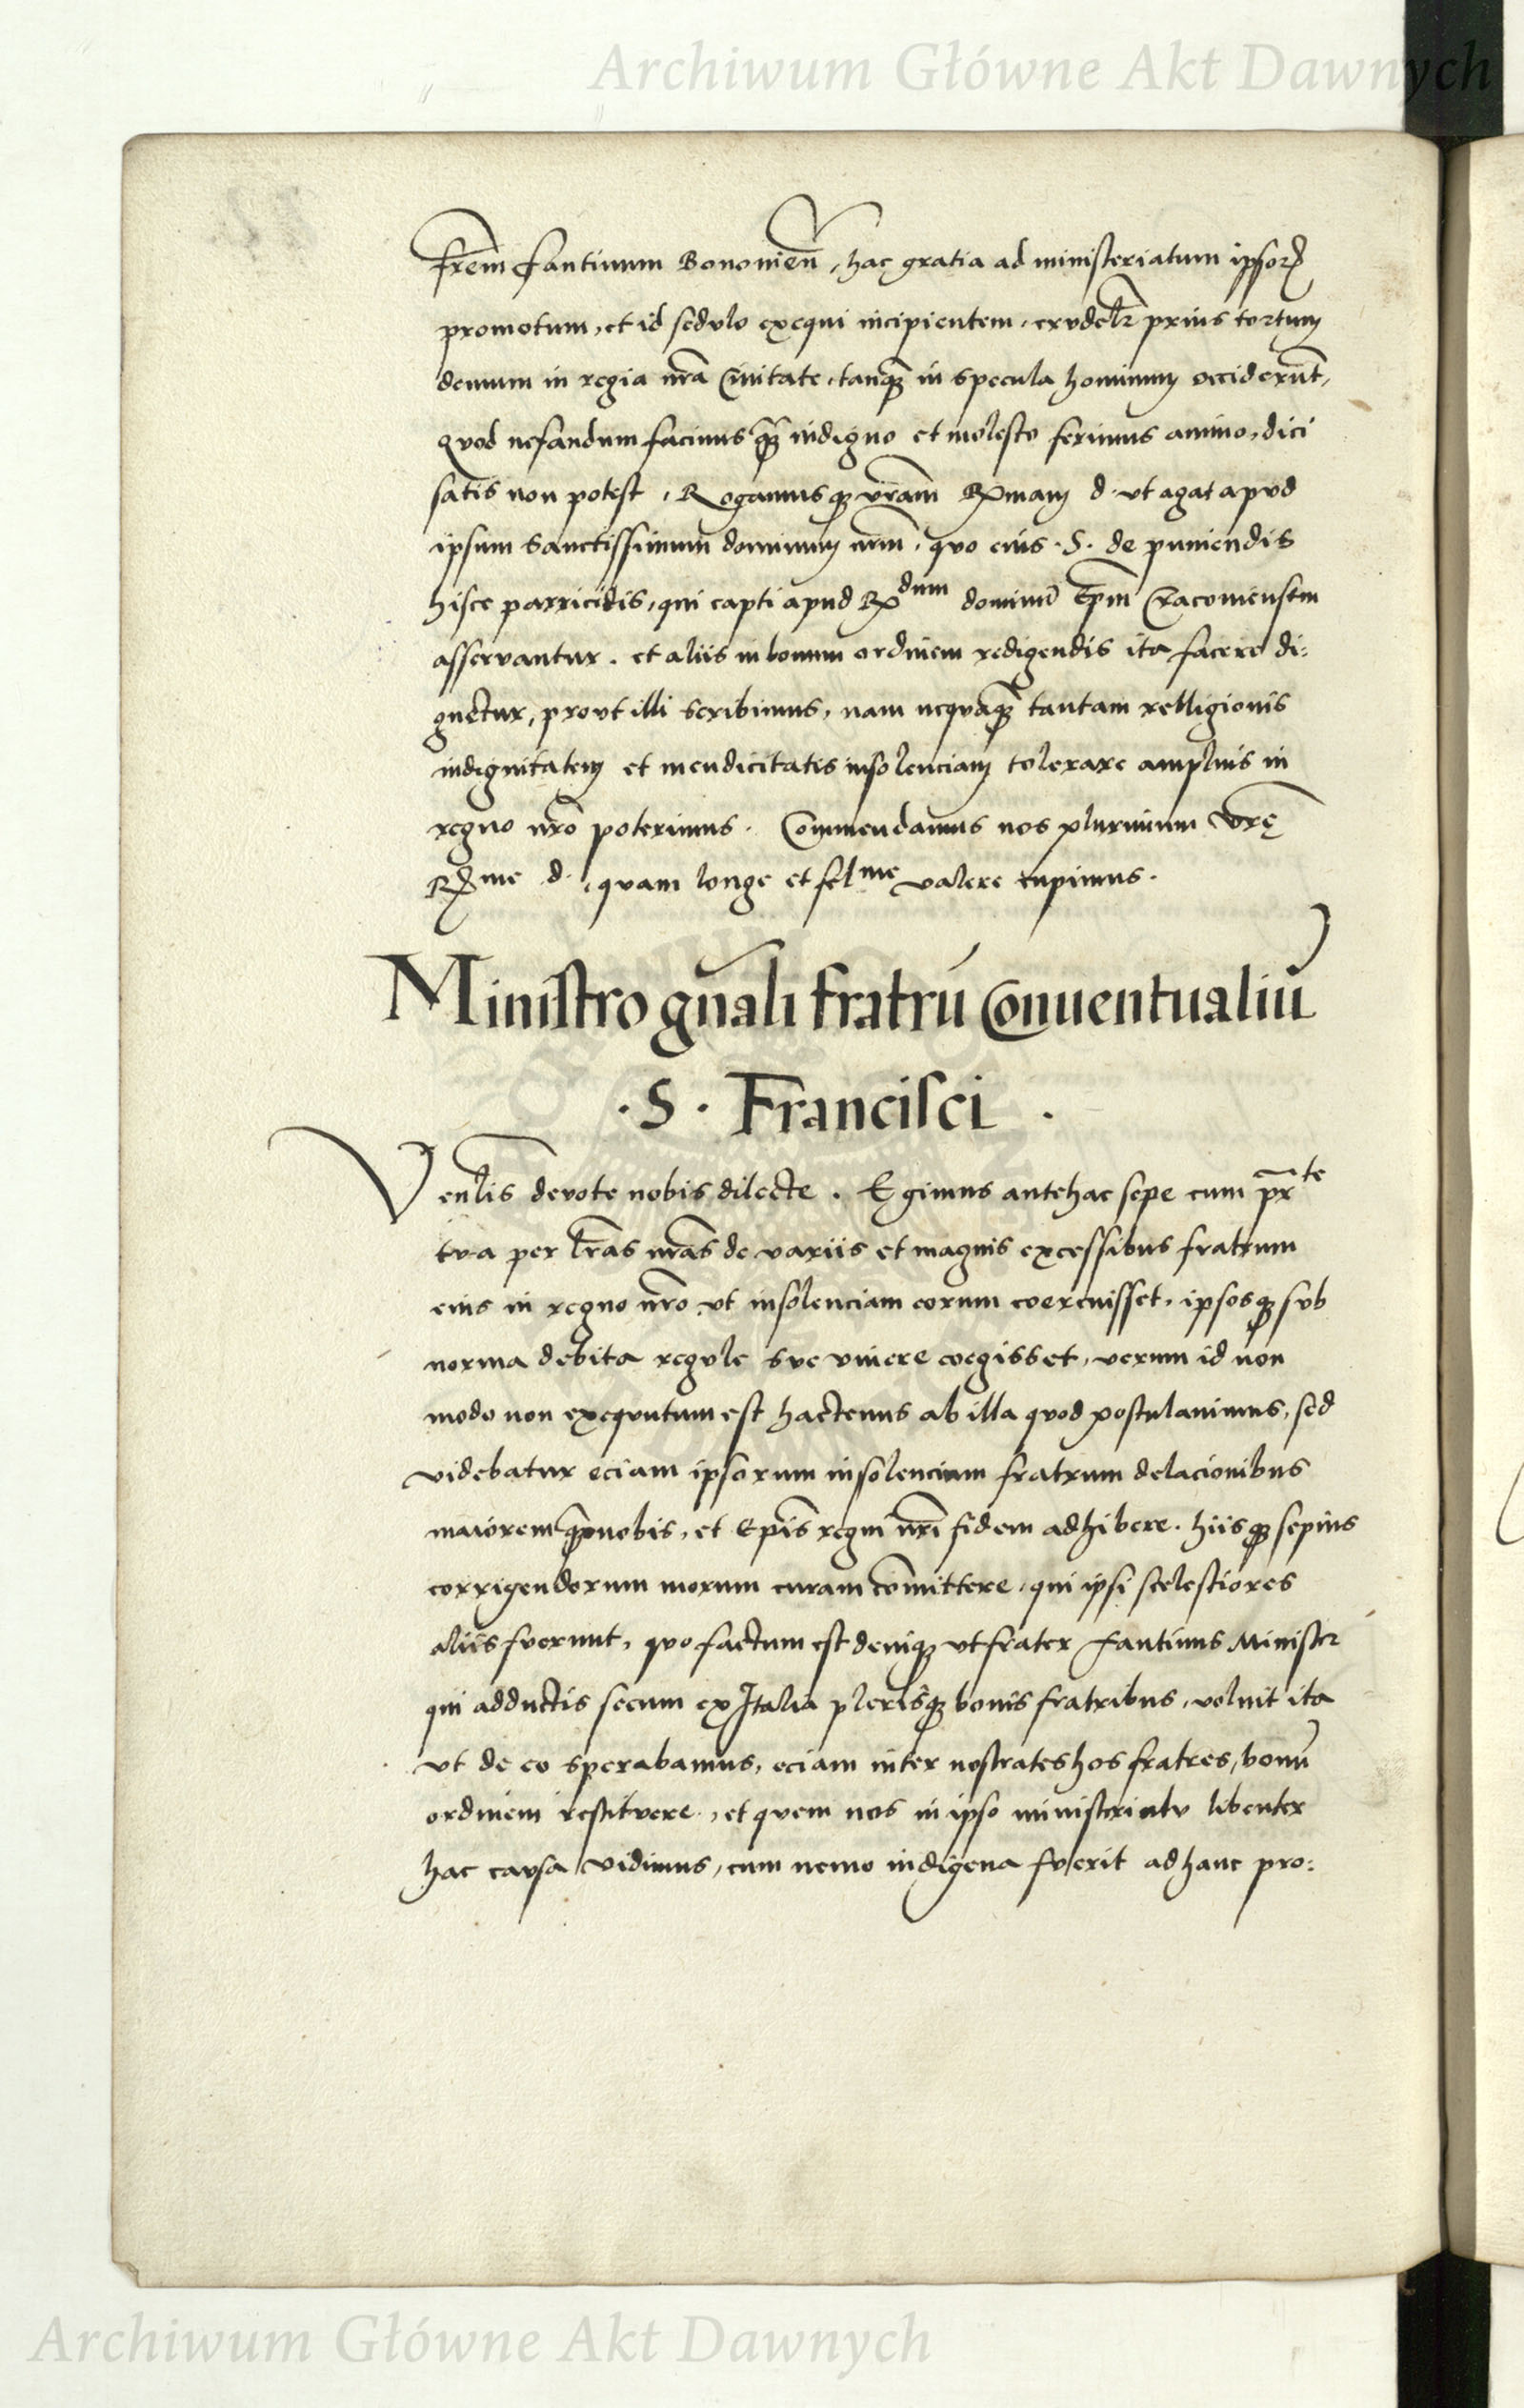 Archiwum Główne Akt Dawnych
frẽm fantinum Bononieñ, hac gratia ad ministeriatum ipsorꝝ
promotum, et id sedulo exequi incipientem, crudelr̃ prius tortum
demum in regia nr̃a Civitate, tanq̃ꝫ in specula hominum occiderũt,
Quod nefandum facinus q̃ꝫ indigno et molesto ferimus animo, dici
satis non potest, Rogamusqꝫ vr̃am Rx̃mam d. vt agat apud
ipsum Sanctissimum dominum nr̃m, quo eius .S. de puniendis
hisce parricidis, qui capti apud R dum dominũ Ep̃m Cracouiensem
asservantur. et aliis in bonum ordinem redigendis ita facere di:
gnetur, prout illi scribimus, nam nequaq̃ꝫ tantam relligionis
indignitatem et mendicitatis insolenciam tolerare amplius in
regno nr̃o poterimus. Commendamus nos plurimum vr̃ę
Rx̃me d., quam longe et fel me valere cupimus.
Ministro gñali fratrũ Conuentualiũ
.S. Francisci .
Venlis devote nobis dilecte. Egimus antehac sepe cum pr̃te
tua per lr̃as nr̃as de variis et magnis excessibus fratrum
eius in regno nr̃o vt insolenciam eorum coercuisset, ipsosqꝫ sub
norma debita regule sue vivere coegisset, verum id non
modo non exequutum est hactenus ab illa quod postulauimus, sed
videbatur eciam ipsorum insolencium fratrum delacionibus
maiorem q̃ꝫ nobis, et Ep̃is regni nr̃i fidem adhibere. hiisqꝫ sepius
corrigendorum morum curam com̃ittere, qui ipsi scelestiores
aliis fuerunt, quo factum est deniqꝫ vt frater fantinus Minister
qui adductis secum ex Italia plerisqꝫ bonis fratribus, voluit ita
vt de eo sperabamus, eciam inter nostrates hos fratres, bonũ
ordinem restituere, et quem nos in ipso ministeriatu libenter
hac causa vidimus, cum nemo indigena fuerit ad hanc pro:
Archiwum Główne Akt Dawnych